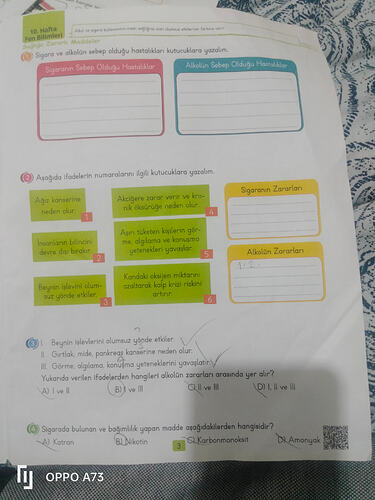 10. Hafta
Fen Bilimleri
Sağlığa Zararlı Maddeler
1 Sigara ve alkolün sebep olduğu hastalıkları kutucuklara yazalım.
Sigaranın Sebep Olduğu Hastalıklar
Alkolün Sebep Olduğu Hastalıklar
2 Aşağıda ifadelerin numaralarını ilgili kutucuklara yazalım.
Ağız kanserine
neden olur.
1
Akciğere zarar verir ve kro-
nik öksürüğe neden olur.
4
Sigaranın Zararları
İnsanların bilincini
devre dışı bırakır.
2
Aşırı tüketen kişilerin gör-
me, algılama ve konuşma
yetenekleri yavaşlar.
5
Alkolün Zararları
Beynin işlevini olum-
suz yönde etkiler.
3
Kandaki oksijen miktarını
azaltarak kalp krizi riskini
artırır.
6
3 I. Beynin işlevlerini olumsuz yönde etkiler.
II. Gırtlak, mide, pankreas kanserine neden olur.
III. Görme, algılama, konuşma yeteneklerini yavaşlatır.
Yukarıda verilen ifadelerden hangileri alkolün zararları arasında yer alır?
A) I ve II B) I ve III C) II ve III D) I, II ve III
4 Sigarada bulunan ve bağımlılık yapan madde aşağıdakilerden hangisidir?
A) Katran B) Nikotin C) Karbonmonoksit D) Amonyak
3
OPPO A73